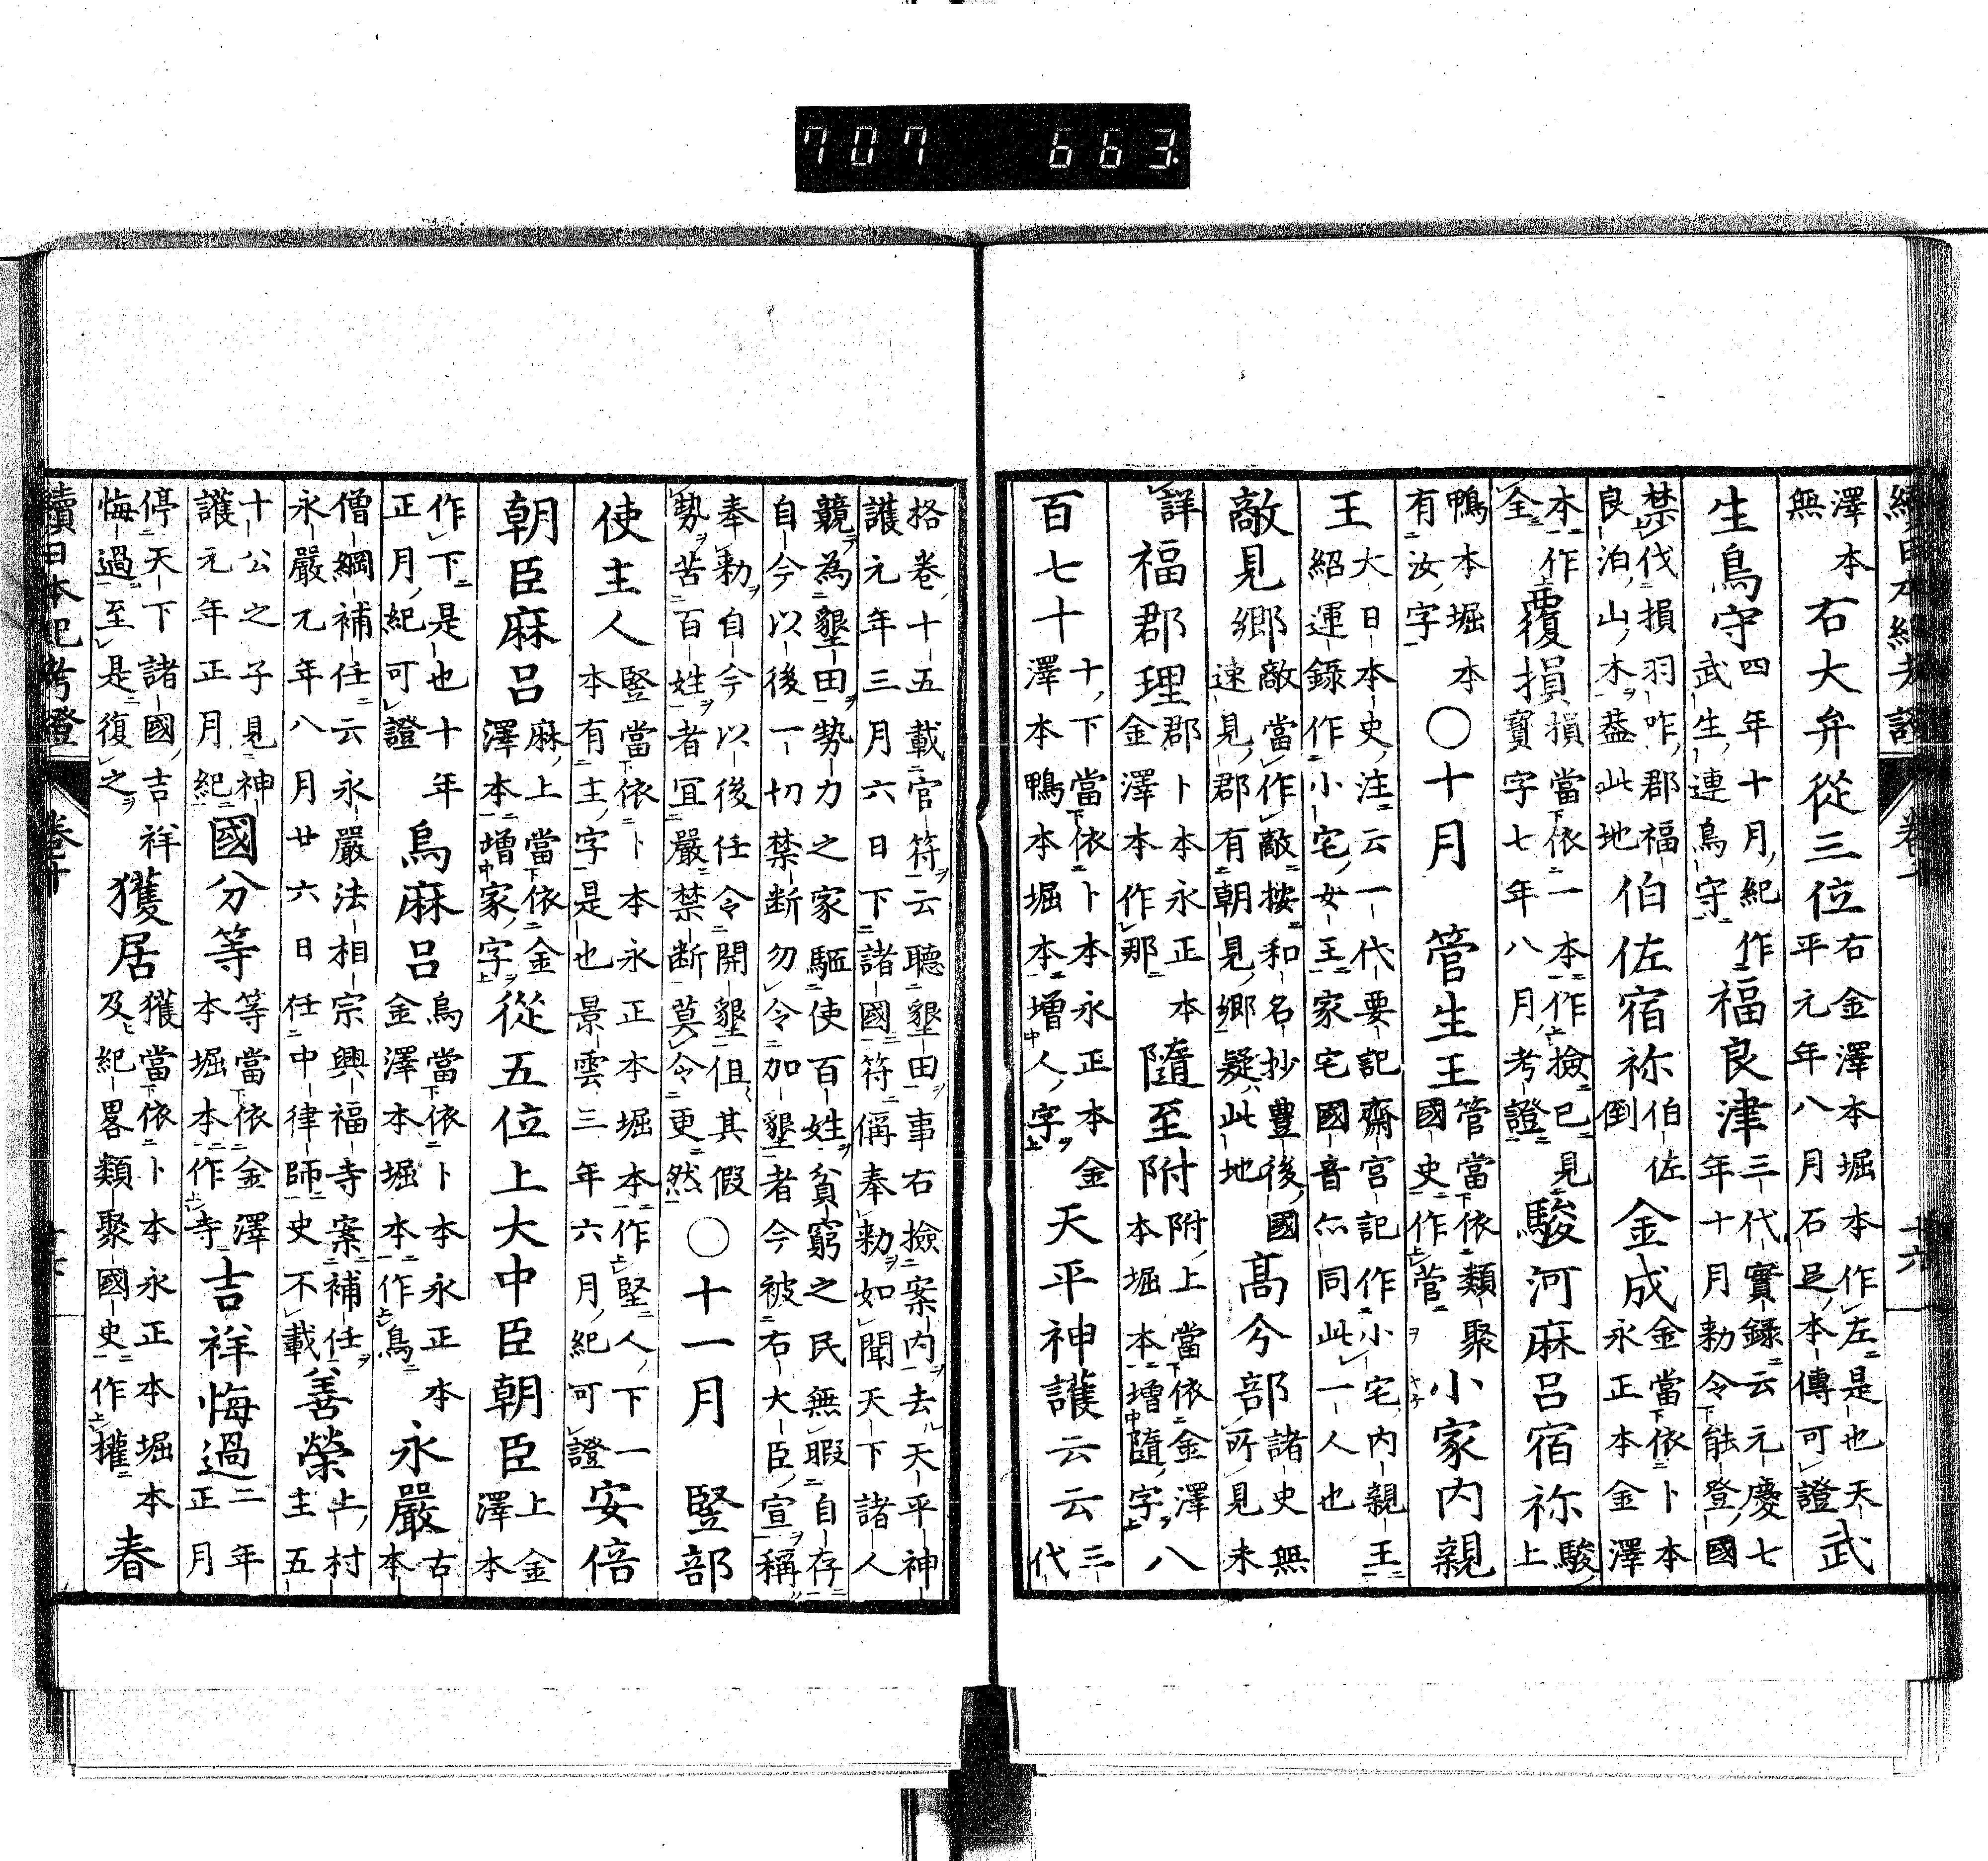 707 663.
續日本紀考證 卷十 十六
澤本右大弁從三位右金澤本堀本作左是也天武
無 平元年八月石足本傳可證
生鳥守四年十月紀作福良津三代實録云元慶七
武生連鳥守 年十月勅令能登國
禁伐損羽咋郡福伯佐宿祢伯佐金成金當依卜本
良泊山木蓋此地 倒 永正本金澤
本作覆損損當依一本作撿已見駿河麻呂宿祢駿
全 寶字七年八月考證 上
鴨本堀本〇十月 管生王管當依類聚小家内親
有汝字 國史作菅
王大日本史注云一代要記齋宮記作小宅内親王
紹運録作小宅女王家宅國音亦同此一人也
敵見郷敵當作敵按和名抄豊後國髙兮部諸史無
速見郡有朝見郷疑此地 所見未
詳福郡理郡卜本永正本隨至附附上當依金澤八
金澤本作那 本堀本增隨字
百七十十下當依卜本永正本金天平神護云云三
澤本鴨本堀本增人字 代
格卷十五載官符云聽墾田事右撿案内去天平神
護元年三月六日下諸國符偁奉勅如聞天下諸人
競為墾田勢力之家駈使百姓貧窮之民無暇自存
自今以後一切禁断勿令加墾者今被右大臣宣稱
奉勅自今以後任令開墾但其假〇十一月 竪部
勢苦百姓者宜嚴禁断莫令更然
使主人竪當依卜本永正本堀本作堅人下一安倍
本有主字是也景雲三年六月紀可證
朝臣麻呂麻上當依金從五位上大中臣朝臣上金
澤本增家字 澤本
作下是也十年烏麻呂烏當依卜本永正本永嚴古
正月紀可證 金澤本堀本作鳥 本
僧綱補任云永嚴法相宗興福寺案補任善榮止村
永嚴元年八月廿六日任中律師史不載 主五
十公之子見神國分等等當依金澤吉祥悔過二年
護元年正月紀 本堀本作寺 正月
停天下諸國吉祥獲居獲當依卜本永正本堀本春
悔過至是復之 及紀畧類聚國史作權
續日本紀考證 卷十